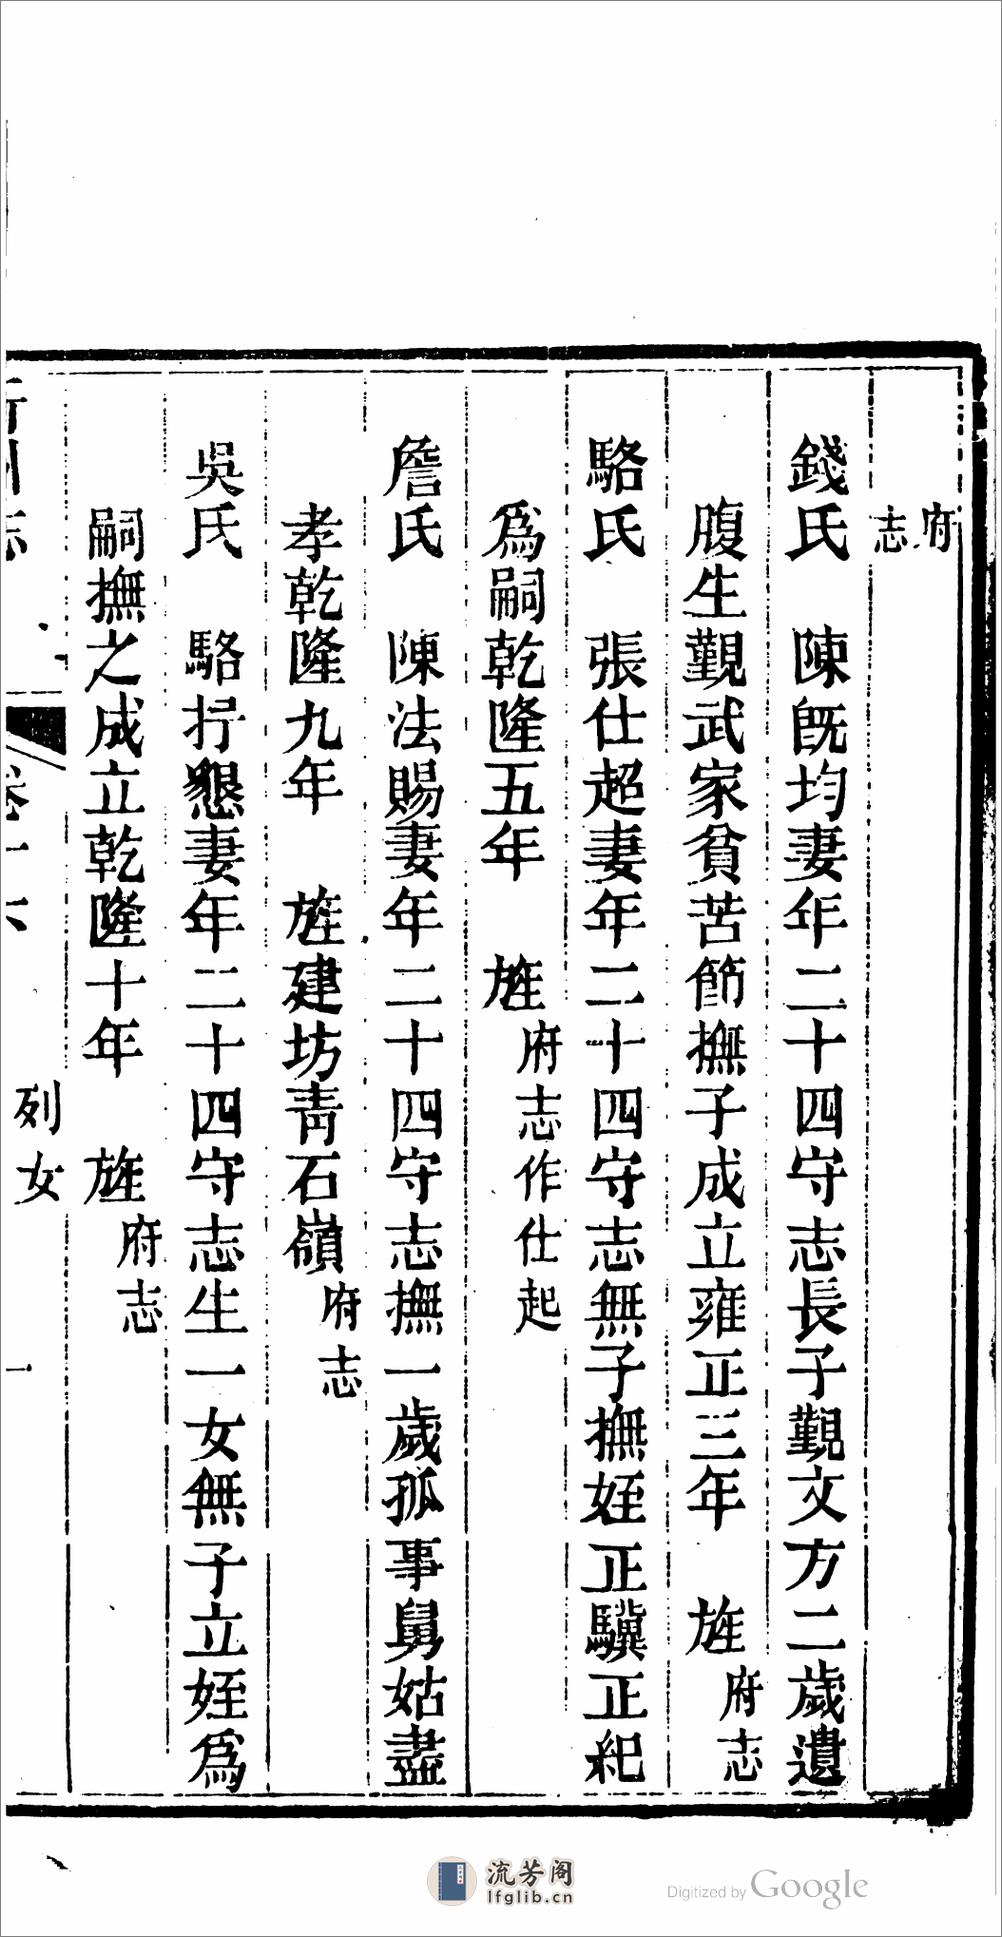 府
志
錢氏　陳旣均妻年二十四守志長子觀文方二歲遺
腹生覲武家貧苦節撫子成立雍正三年　旌府志
駱氏　張仕超妻年二十四守志無子撫姪正驥正紀
爲嗣乾隆五年　旌府志作仕起
詹氏　陳法賜妻年二十四守志撫一歲孤事舅姑盡
孝乾隆九年　旌建坊靑石嶺府志
吳氏　駱懇妻年二十四守志生一女無子立姪爲
嗣撫之成立乾隆十年　旌府志
志　卷十六　列女　一
流芳阁
lfglib.cn
Digitized by Google